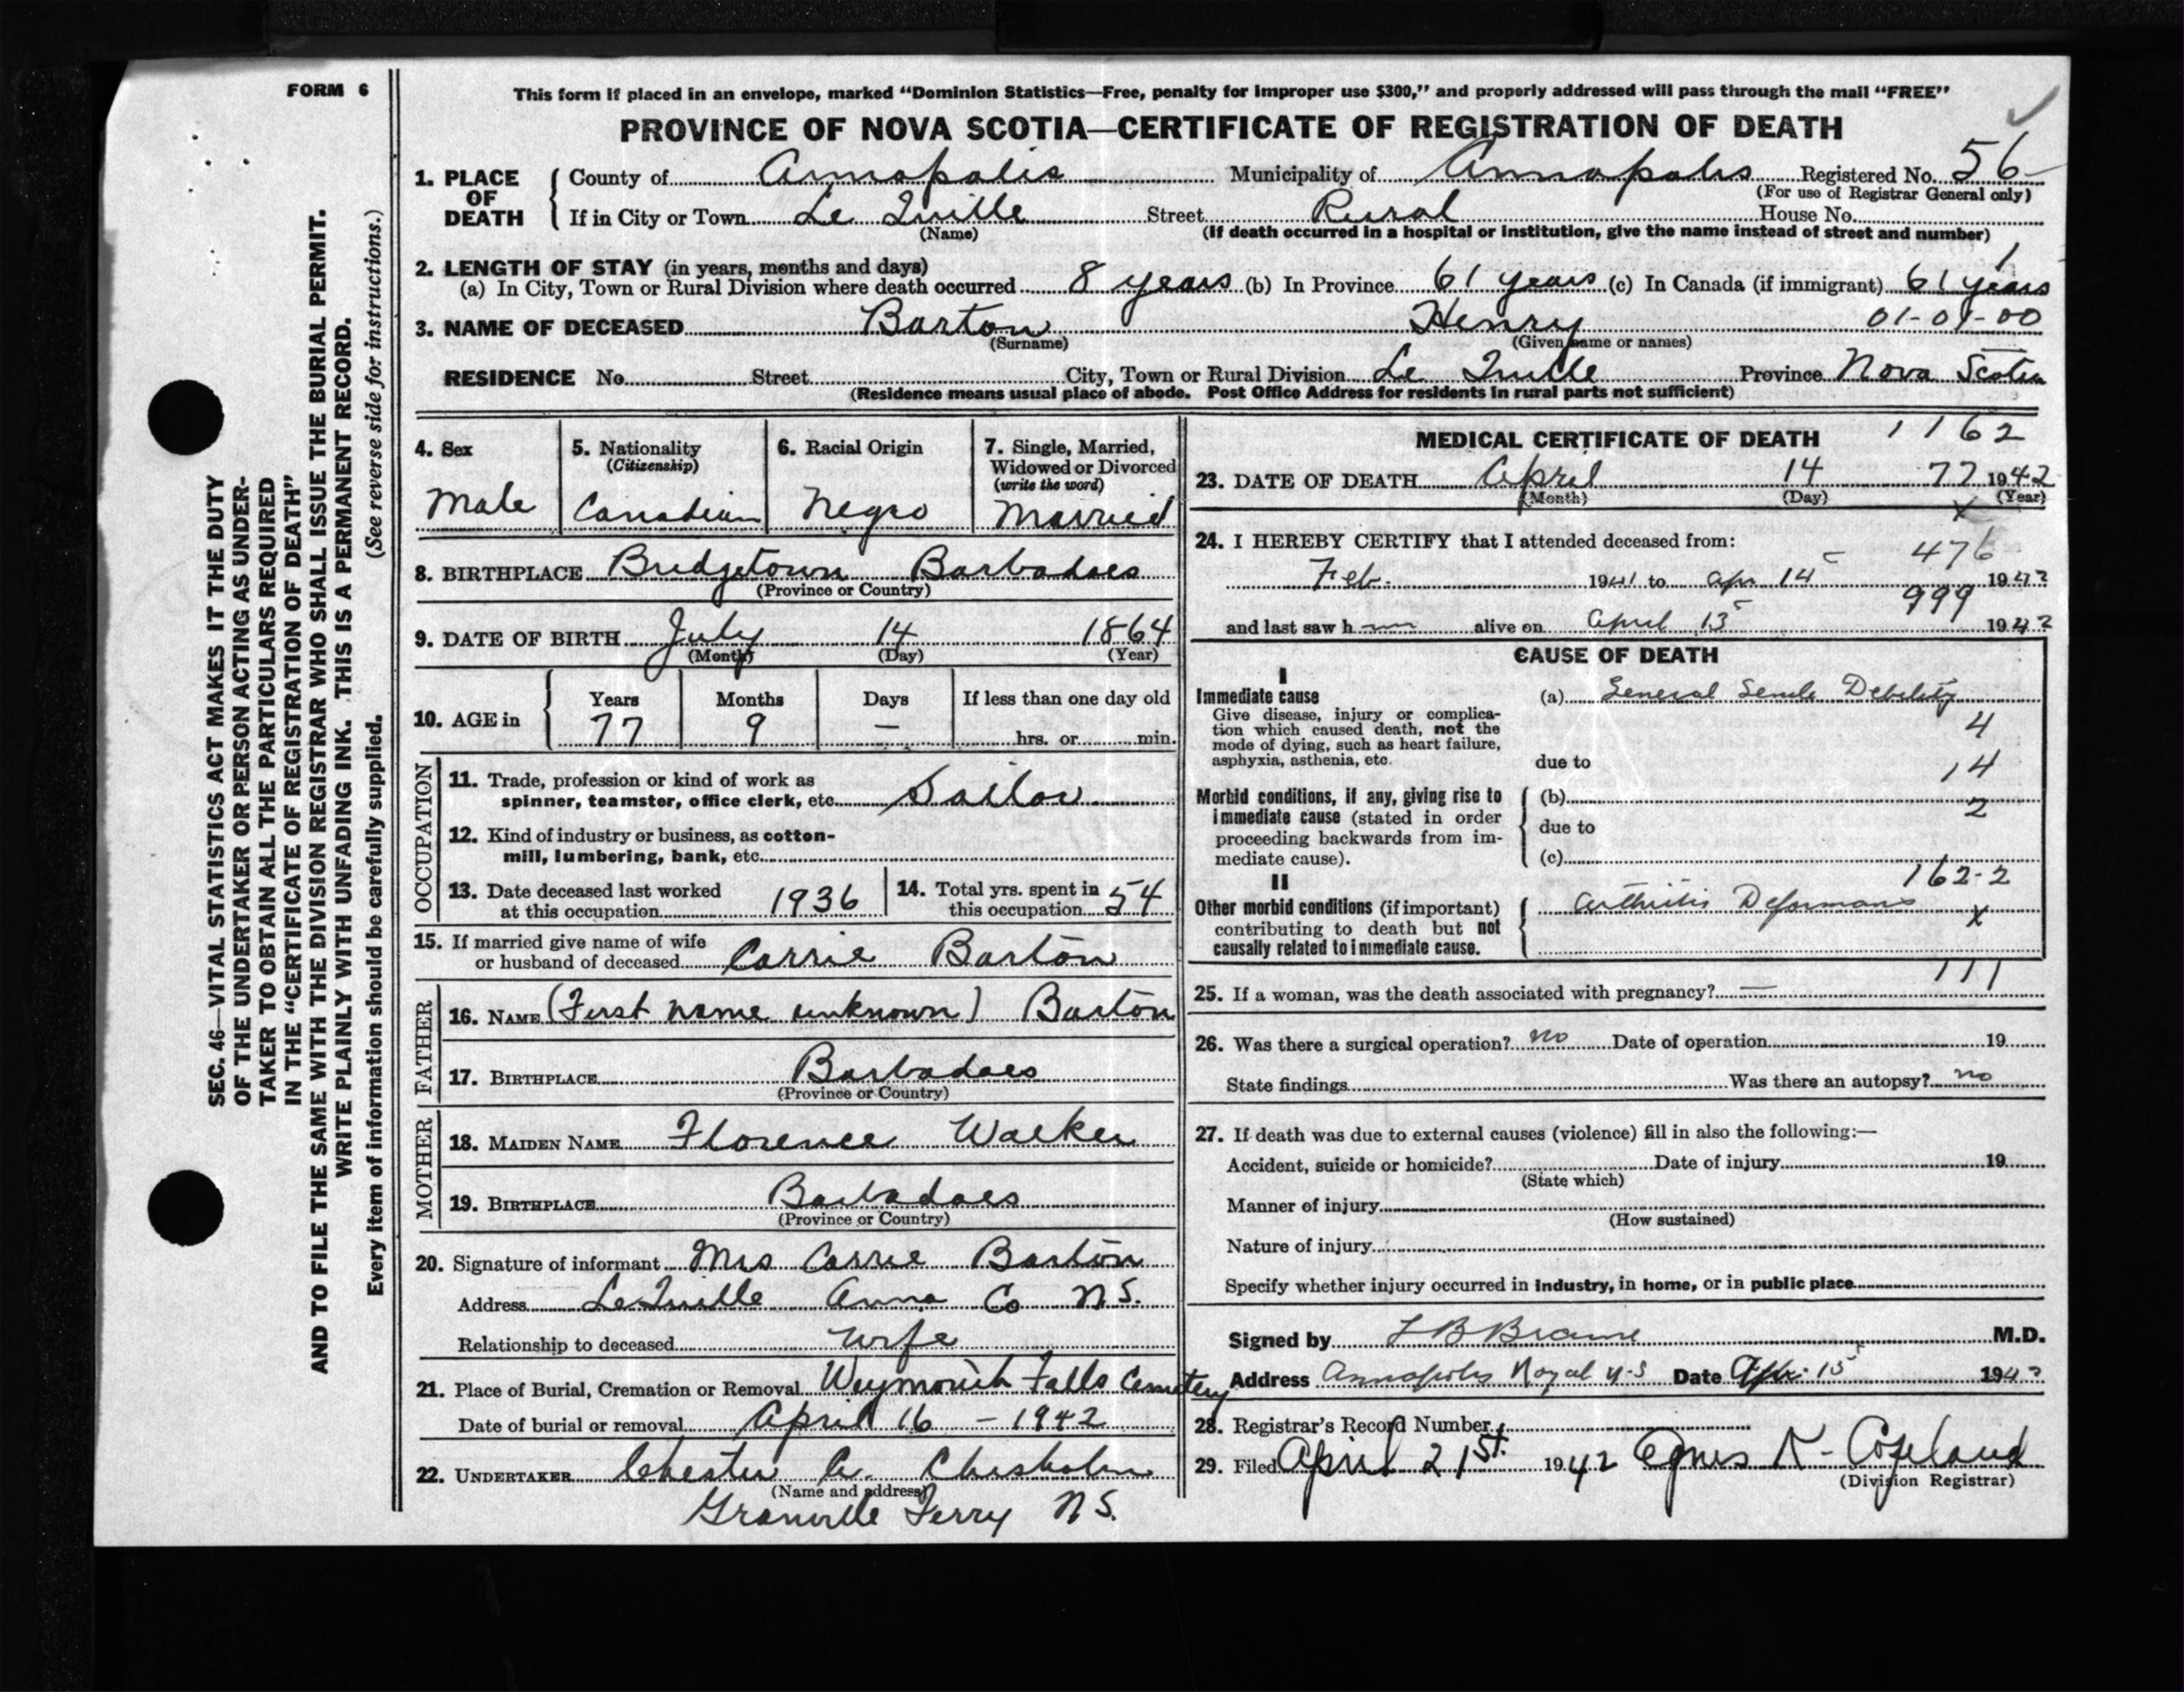 FORM 6
This form if placed in an envelope, marked “Dominion Statistics—Free, penalty for improper use $300,” and properly addressed will pass through the mail “FREE”
PROVINCE OF NOVA SCOTIA—CERTIFICATE OF REGISTRATION OF DEATH
1. PLACE OF DEATH
County of Annapolis Municipality of Annapolis Registered No. 56
(For use of Registrar General only)
If in City or Town Le Quille Street Rural House No.
(Name) (If death occurred in a hospital or institution, give the name instead of street and number)
2. LENGTH OF STAY (in years, months and days) 1
(a) In City, Town or Rural Division where death occurred 8 years (b) In Province 61 years (c) In Canada (if immigrant) 61 years
3. NAME OF DECEASED Barton Henry 01-01-00
(Surname) (Given name or names)
RESIDENCE No. Street City, Town or Rural Division Le Quille Province Nova Scotia
(Residence means usual place of abode. Post Office Address for residents in rural parts not sufficient)
4. Sex
Male
5. Nationality
(Citizenship)
Canadian
6. Racial Origin
Negro
7. Single, Married,
Widowed or Divorced
(write the word)
Married
8. BIRTHPLACE Bridgetown Barbadoes
(Province or Country)
9. DATE OF BIRTH July 14 1864
(Month) (Day) (Year)
10. AGE in
Years Months Days If less than one day old
77 9 — hrs. or min.
OCCUPATION
11. Trade, profession or kind of work as
spinner, teamster, office clerk, etc. Sailor
12. Kind of industry or business, as cotton-
mill, lumbering, bank, etc.
13. Date deceased last worked
at this occupation 1936
14. Total yrs. spent in
this occupation 54
15. If married give name of wife
or husband of deceased Carrie Barton
FATHER
16. NAME (First name unknown) Barton
17. BIRTHPLACE Barbadoes
(Province or Country)
MOTHER
18. MAIDEN NAME Florence Walker
19. BIRTHPLACE Barbadoes
(Province or Country)
20. Signature of informant Mrs Carrie Barton
Address LeQuille Anna Co N.S.
Relationship to deceased wife
21. Place of Burial, Cremation or Removal Weymouth Falls Cemetery
Date of burial or removal April 16 - 1942
22. UNDERTAKER Chester A. Chisholm
(Name and address)
Granville Ferry N.S.
MEDICAL CERTIFICATE OF DEATH 1162
23. DATE OF DEATH April 14 77 1942
(Month) (Day) (Year)
x
24. I HEREBY CERTIFY that I attended deceased from:
476
Feb. 1941 to Apr 14 1942
999
and last saw h alive on April 13 1942
CAUSE OF DEATH
I
Immediate cause
Give disease, injury or complica-
tion which caused death, not the
mode of dying, such as heart failure,
asphyxia, asthenia, etc.
(a) General Senile Debility
4
due to
14
Morbid conditions, if any, giving rise to
immediate cause (stated in order
proceeding backwards from im-
mediate cause).
(b)
2
due to
(c)
II
162-2
Other morbid conditions (if important)
contributing to death but not
causally related to immediate cause.
Arthritis Deformans
x
111
25. If a woman, was the death associated with pregnancy? —
26. Was there a surgical operation? no Date of operation 19
State findings Was there an autopsy? no
27. If death was due to external causes (violence) fill in also the following:—
Accident, suicide or homicide? Date of injury 19
(State which)
Manner of injury
(How sustained)
Nature of injury
Specify whether injury occurred in industry, in home, or in public place
Signed by M.D.
Address Annapolis Royal N-S Date Apr. 15 1942
28. Registrar's Record Number
29. Filed April 21st. 1942 Agnes K. Copeland
(Division Registrar)
SEC. 46—VITAL STATISTICS ACT MAKES IT THE DUTY
OF THE UNDERTAKER OR PERSON ACTING AS UNDER-
TAKER TO OBTAIN ALL THE PARTICULARS REQUIRED
IN THE “CERTIFICATE OF REGISTRATION OF DEATH”
AND TO FILE THE SAME WITH THE DIVISION REGISTRAR WHO SHALL ISSUE THE BURIAL PERMIT.
WRITE PLAINLY WITH UNFADING INK. THIS IS A PERMANENT RECORD.
Every item of information should be carefully supplied. (See reverse side for instructions.)